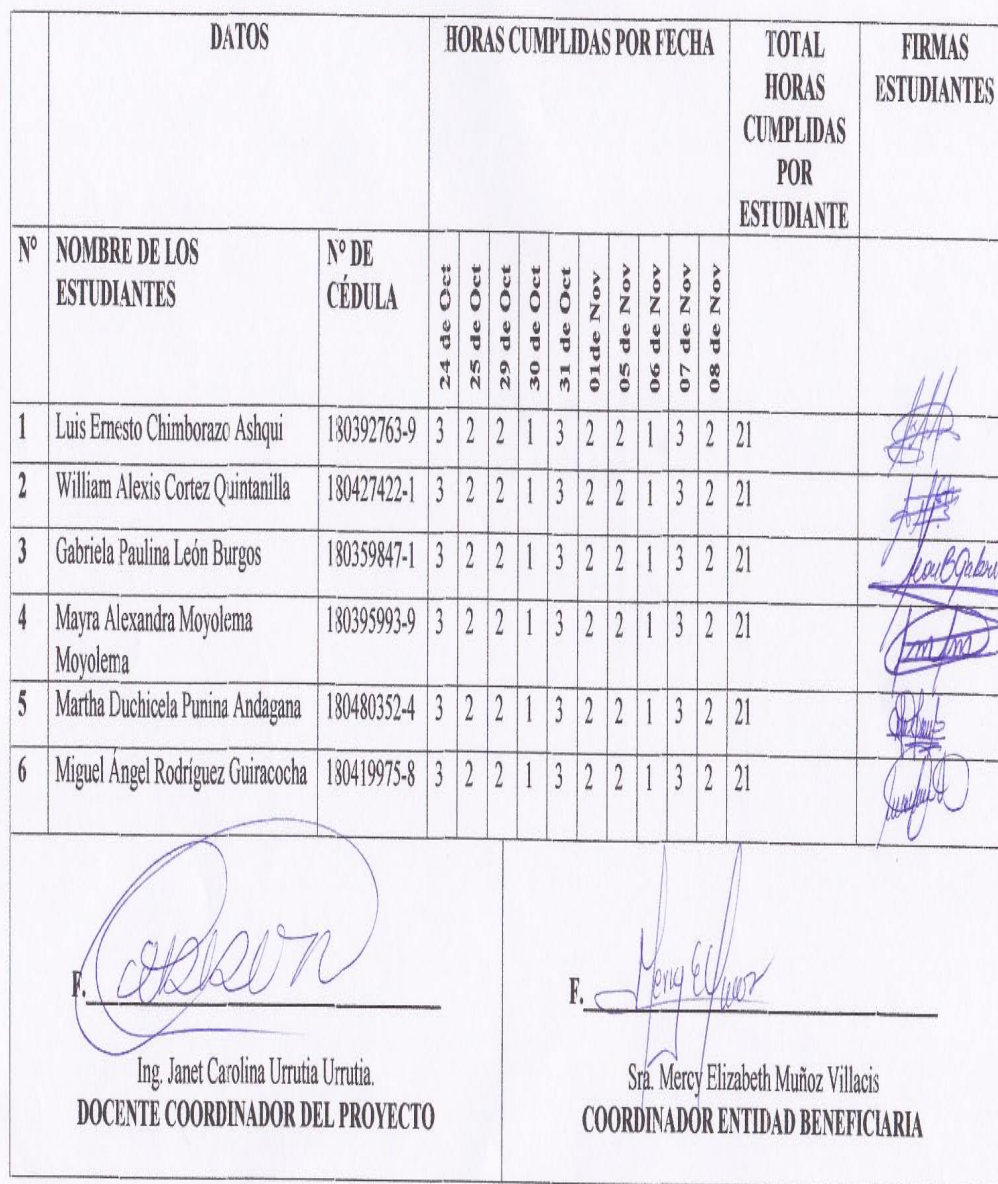 DATOS HORAS CUMPLIDAS POR FECHA TOTAL HORAS CUMPLIDAS POR ESTUDIANTE FIRMAS ESTUDIANTES
Nº NOMBRE DE LOS ESTUDIANTES Nº DE CÉDULA 24 de Oct 25 de Oct 29 de Oct 30 de Oct 31 de Oct 01de Nov 05 de Nov 06 de Nov 07 de Nov 08 de Nov
1 Luis Ernesto Chimborazo Ashqui 180392763-9 3 2 2 1 3 2 2 1 3 2 21
2 William Alexis Cortez Quintanilla 180427422-1 3 2 2 1 3 2 2 1 3 2 21
3 Gabriela Paulina León Burgos 180359847-1 3 2 2 1 3 2 2 1 3 2 21
4 Mayra Alexandra Moyolema Moyolema 180395993-9 3 2 2 1 3 2 2 1 3 2 21
5 Martha Duchicela Punina Andagana 180480352-4 3 2 2 1 3 2 2 1 3 2 21
6 Miguel Ángel Rodríguez Guiracocha 180419975-8 3 2 2 1 3 2 2 1 3 2 21
F.
Ing. Janet Carolina Urrutia Urrutia.
DOCENTE COORDINADOR DEL PROYECTO
F.
Sra. Mercy Elizabeth Muñoz Villacis
COORDINADOR ENTIDAD BENEFICIARIA